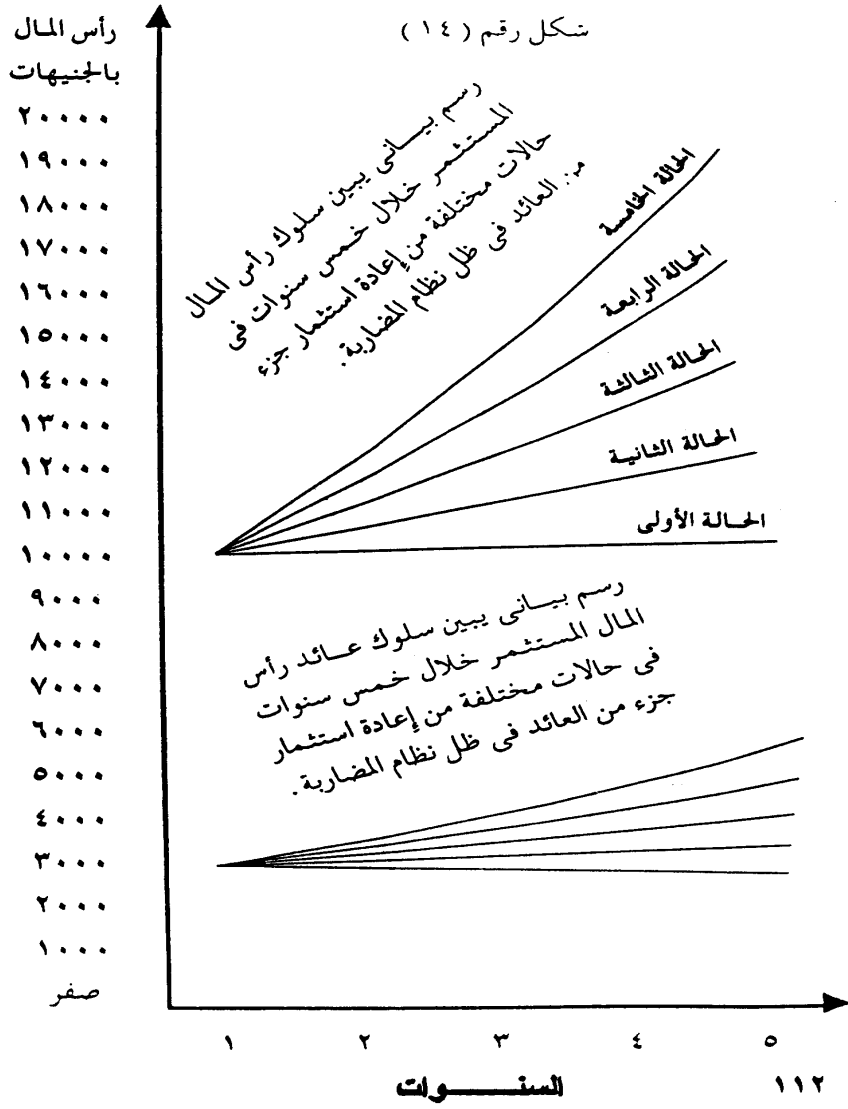 شكل رقم ( ١٤ )
رأس المال
بالجنيهات
٢٠٠٠٠
١٩٠٠٠
١٨٠٠٠
١٧٠٠٠
١٦٠٠٠
١٥٠٠٠
١٤٠٠٠
١٣٠٠٠
١٢٠٠٠
١١٠٠٠
١٠٠٠٠
٩٠٠٠
٨٠٠٠
٧٠٠٠
٦٠٠٠
٥٠٠٠
٤٠٠٠
٣٠٠٠
٢٠٠٠
١٠٠٠
صفر
رسم بيانى يبين سلوك رأس المال
المستثمر خلال خمس سنوات فى
حالات مختلفة من إعادة استثمار جزء
من العائد فى ظل نظام المضاربة.
الحالة الخامسة
الحالة الرابعة
الحالة الثالثة
الحالة الثانية
الحالة الأولى
رسم بيانى يبين سلوك عائد رأس
المال المستثمر خلال خمس سنوات
فى حالات مختلفة من إعادة استثمار
جزء من العائد فى ظل نظام المضاربة.
١ ٢ ٣ ٤ ٥
السنوات
١١٢